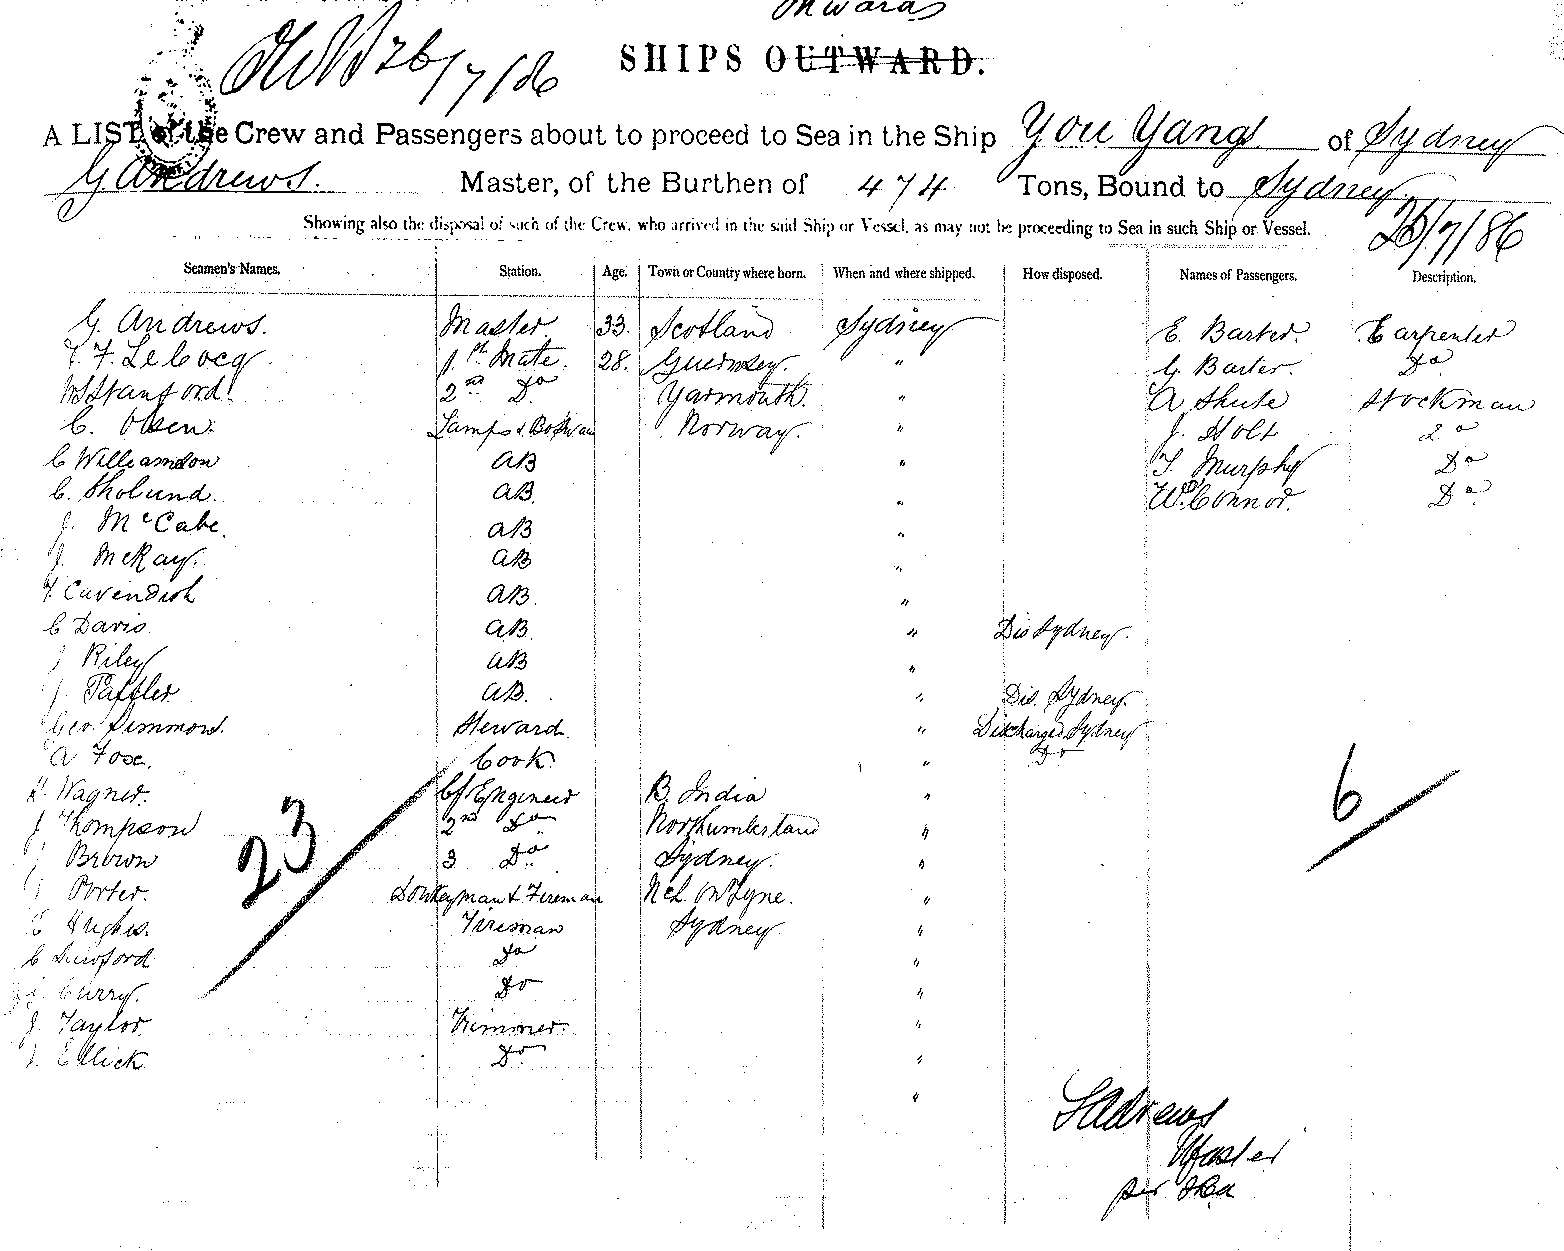 Inwards
26/7/86
SHIPS OUTWARD.
A LIST of the Crew and Passengers about to proceed to Sea in the Ship You Yangs of Sydney
G Andrews. Master, of the Burthen of 474 Tons, Bound to Sydney
26/7/86
Showing also the disposal of such of the Crew, who arrived in the said Ship or Vessel, as may not be proceeding to Sea in such Ship or Vessel.
Seamen's Names. Station. Age. Town or Country where born. When and where shipped. How disposed. Names of Passengers. Description.
G. Andrews. Master 33. Scotland Sydney E. Barter. Carpenter
F. LeCocq 1st Mate. 28. Guernsey. " G. Barter. Do
Stanford. 2nd Do Yarmouth. " A Shute Stockman
C. Olsen. Lamps & Norway. " J. Holt Do
C Williamson AB " T. Murphy Do
C. Sholund. AB " W. Connor. Do
J. McCabe. AB "
J. McKay. AB "
F. Cavendish AB. "
C Davis. AB " Dis Sydney.
J Riley AB "
J. AB. " Dis. Sydney.
Geo. Simmons. Steward. " Discharged Sydney
A Foxe. Cook. " Do
H. Wagner. Cf Engineer B. India "
J Thompson 2nd Do Northumberland "
J Brown 3 Do Sydney. "
J Porter. Donkeyman & Fireman Ncl. on Tyne. "
E Hughes. Fireman Sydney. "
C Do "
Curry. Do "
J. Taylor. Trimmer. "
J. Ellick Do "
"
23
6
Andrews
Master
per